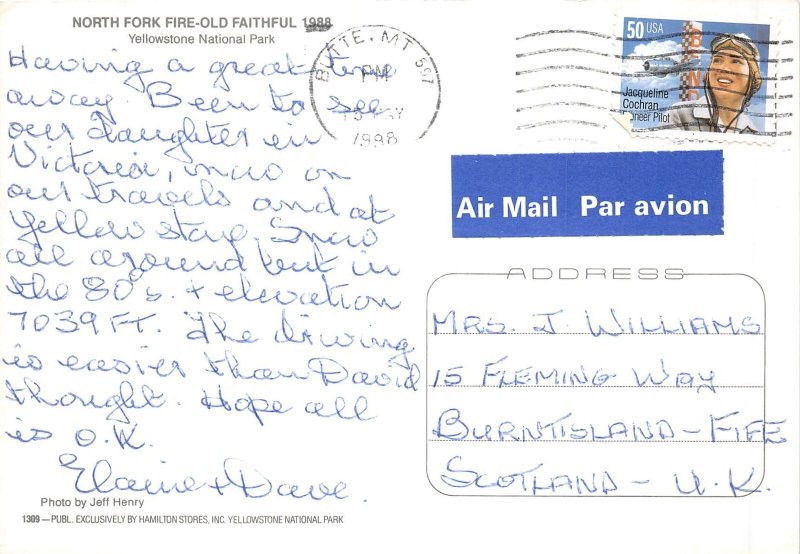 NORTH FORK FIRE-OLD FAITHFUL 1988
Yellowstone National Park
Having a great time
away. Been to see
our daughter in
Victoria, now on
our travels and at
Yellowstone. Snow
all around but in
the 80's. + elevation
7039 FT. The driving
is easier than David
thought. Hope all
is O.K.
Elaine + Dave.
Photo by Jeff Henry
1309 — PUBL. EXCLUSIVELY BY HAMILTON STORES, INC. YELLOWSTONE NATIONAL PARK
BUTTE, MT 597
PM
1998
50 USA
Jacqueline
Cochran
Pioneer Pilot
Air Mail Par avion
ADDRESS
MRS. J. WILLIAMS
15 FLEMING WAY
BURNTISLAND - FIFE
SCOTLAND - U.K.